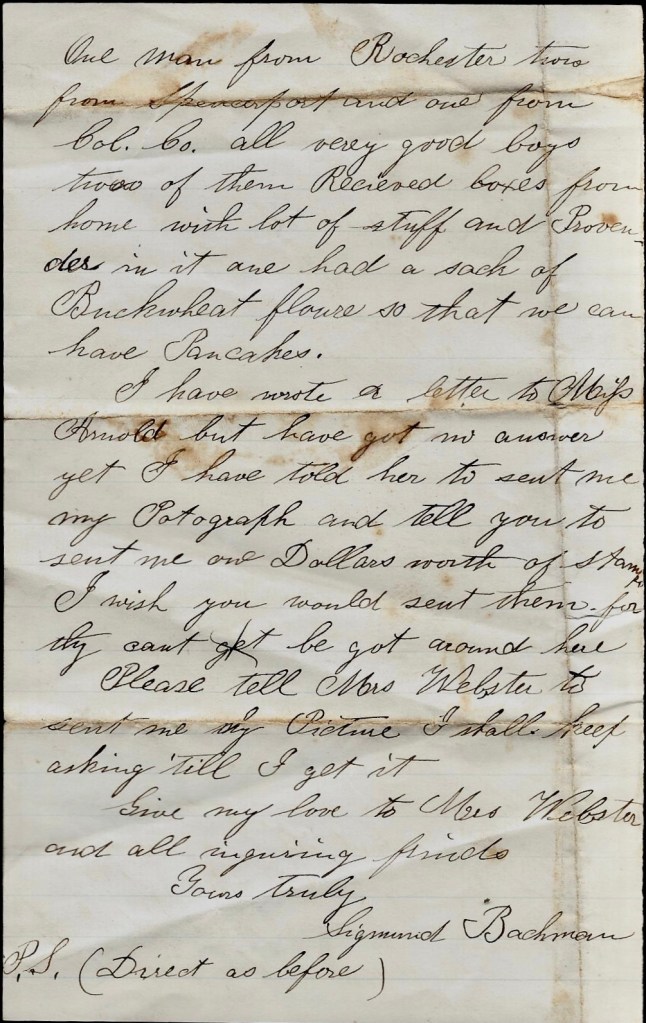 One man from Rochester two
from Spencerport and one from
Col. Co. all verey good boys
two of them Recieved boxes from
home with lot of stuff and Proven-
der in it one had a sack of
Buckwheat floure so that we can
have Pancakes.
I have wrote a letter to Miss
Arnold but have got no answer
yet I have told her to sent me
my Potograph and tell you to
sent me one Dollars worth of stamps
I wish you would sent them for
thy cant get be got around here
Please tell Mrs Webster to
sent me my Picture I shall keep
asking till I get it
Give my love to Mrs Webster
and all inquiring frinds
Yours truly
Sigmund Bachman
P.S. (Direct as before)